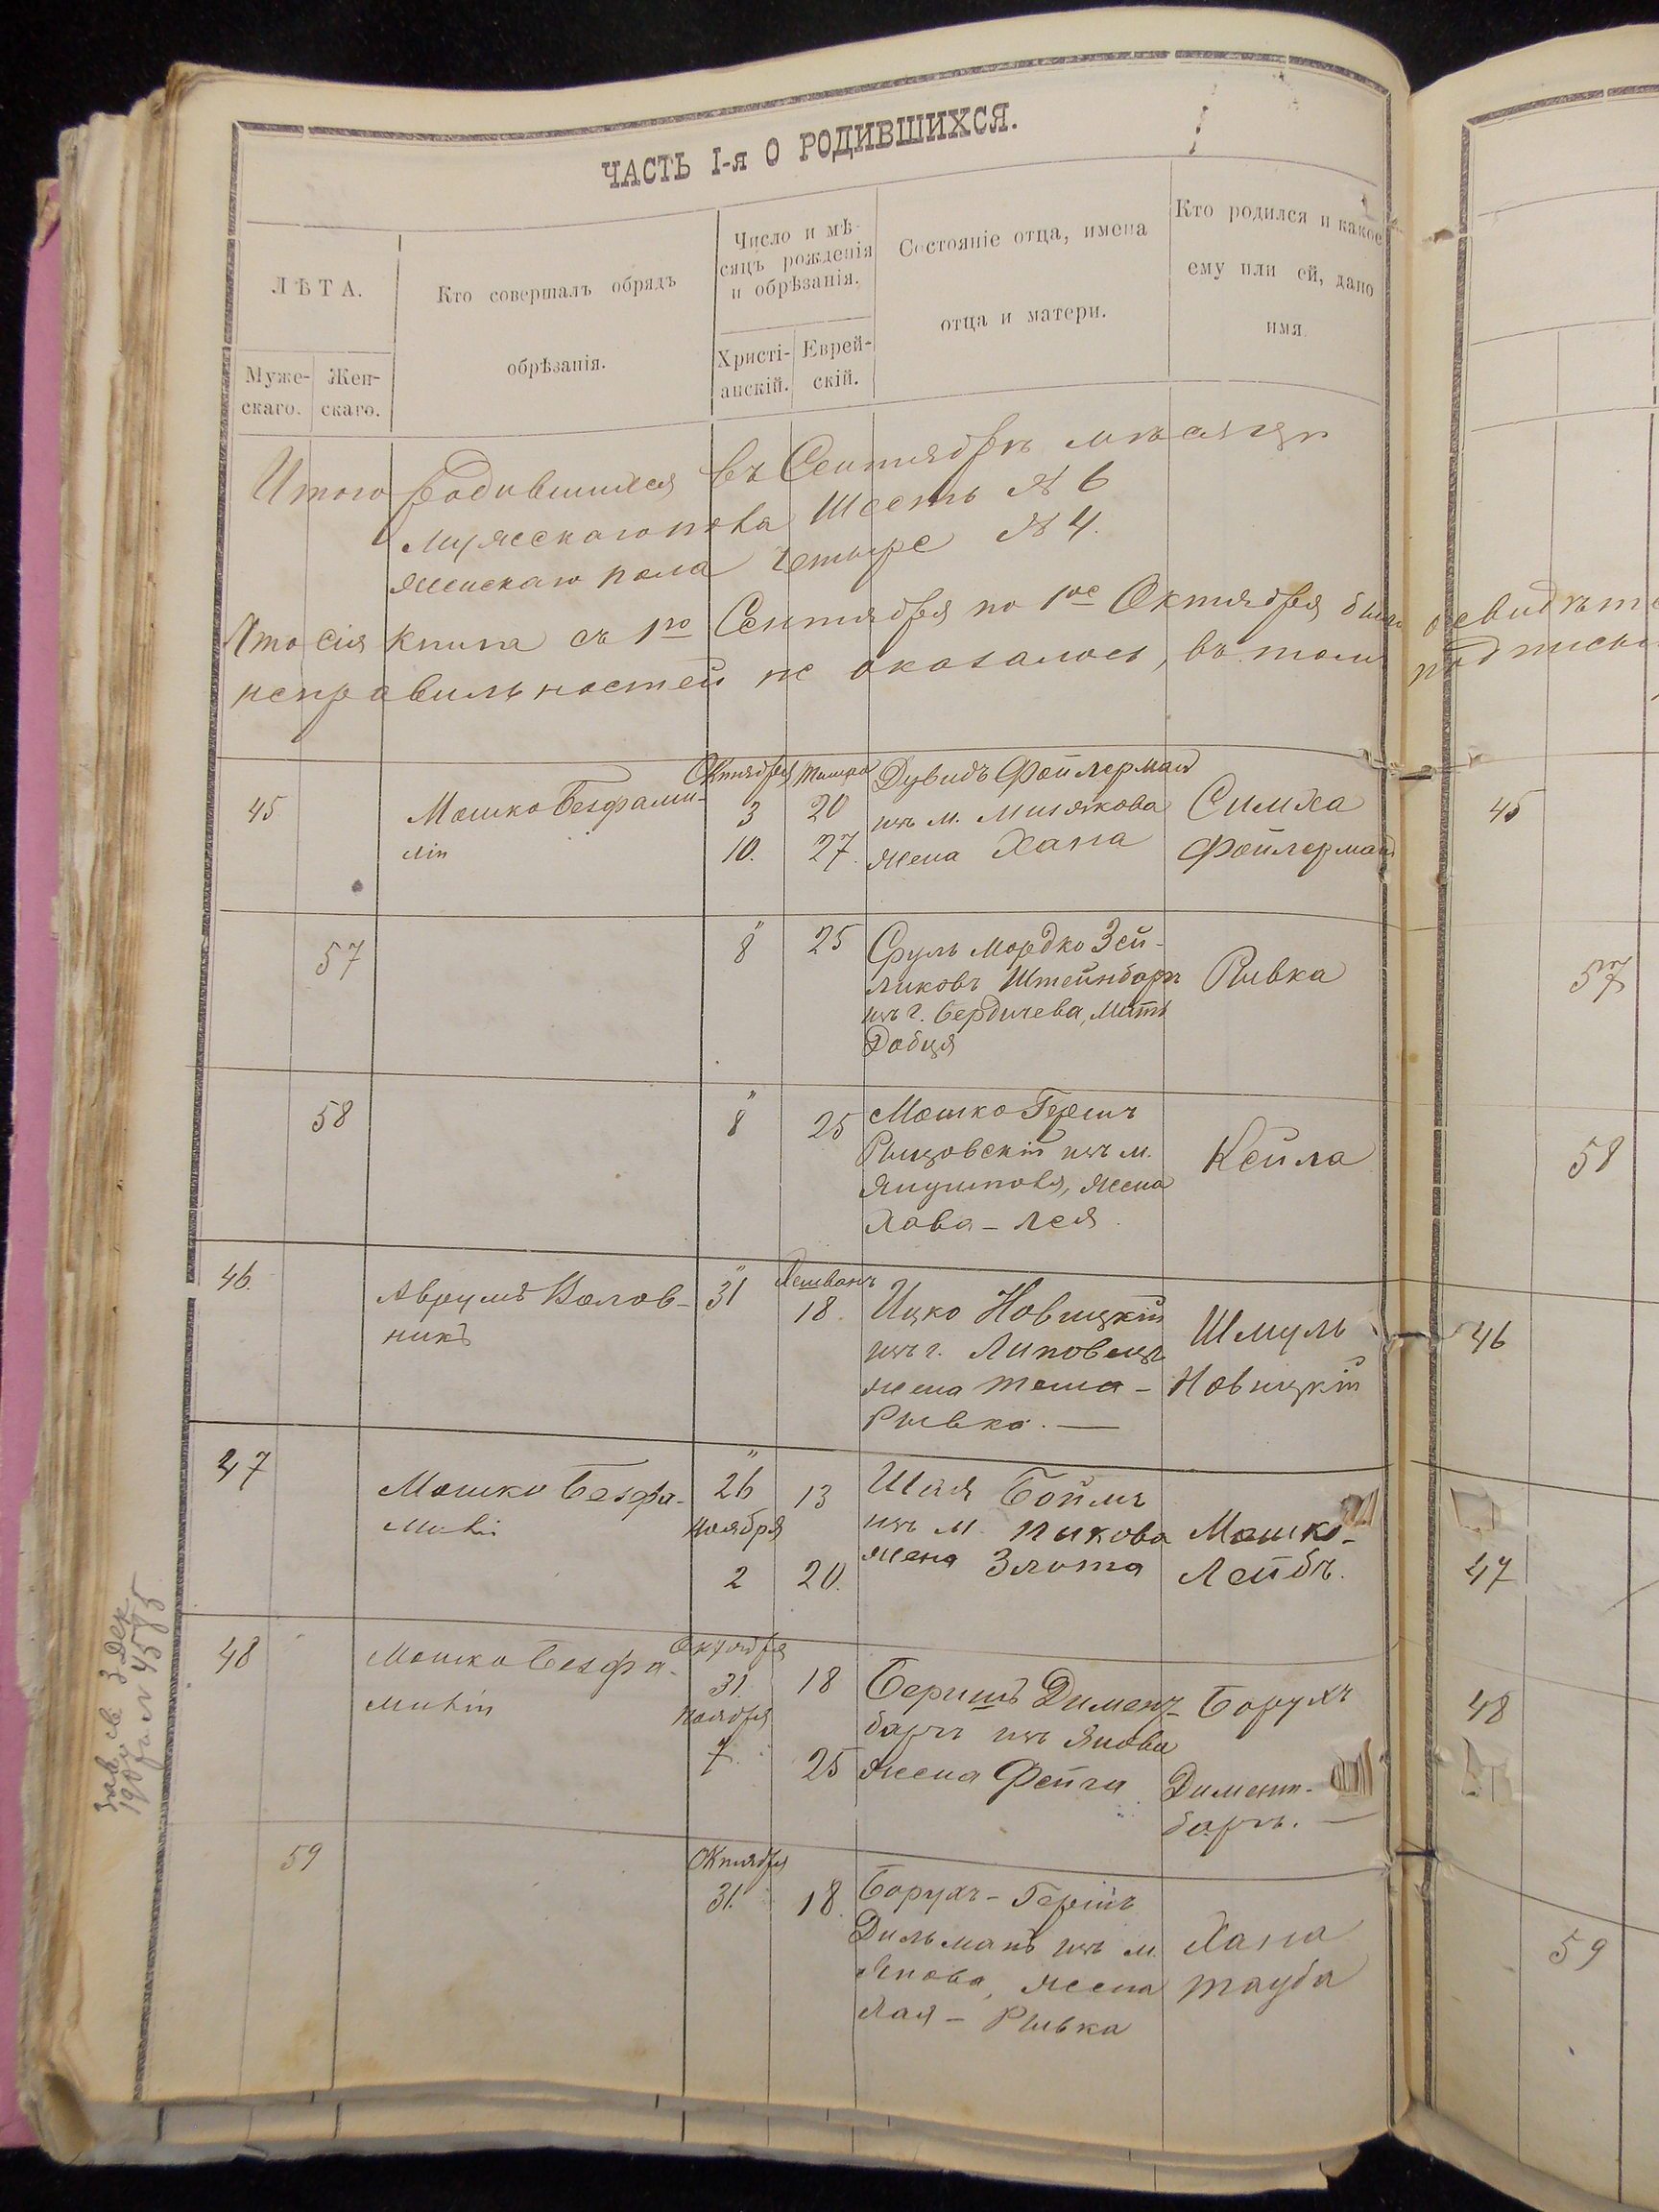 ЧАСТЬ I-я О РОДИВШИХСЯ.
ЛѢТА.
Муже-
скаго.
Жен-
скаго.
Кто совершалъ обрядъ
обрѣзанія.
Число и мѣ-
сяцъ рожденія
и обрѣзанія.
Христі-
анскій.
Еврей-
скій.
Состояніе отца, имена
отца и матери.
Кто родился и какое
ему или ей, дано
имя.
Итого родившихся въ Сентябрѣ мѣсяцѣ
Мужескаго пола Шесть № 6
Женскаго пола Четыре № 4.
Что сія книга съ 1го Сентября по 1ое Октября была
неправильностей не оказалось, въ томъ
45
Мошко Безфами-
лін
Октября
3
10.
Тишра
20
27.
Дувидъ Фойлерман
изъ м. Милякова
жена Хана
Симха
Фойлерман
45
57
" 8
25
Сруль Мордко Зей-
ликовъ Штейнбарг
изъ г. Бердичева, Мать
Добця
Рывка
57
58
" 8
25
Мошко Гершъ
изъ м.
Янушполя, жена
Хава - Лея
Кейла
58
46.
Аврумъ Колов-
никъ
" 31
Хешванъ
18.
Ицко Новицкій
изъ г. Липовецъ
жена Тема -
Рывка. —
Шмуль
Новицкій
46
47
Мошко Безфа-
милін
" 26
Ноября
2
13
20.
Шая Боймъ
изъ м. Пыкова
жена Злота
Мошко-
Лейбъ.
47
48
Мошко Безфа-
милін
Октября
31.
Ноября
7.
18
25
Беришъ Димент-
баргъ изъ Янова
жена Фейга
Борухъ
Димент-
баргъ. —
48
59
Октября
31.
18.
Борухъ - Гершъ
Дильманъ изъ м.
Янова, жена
Хая - Рывка
Хана
Тауба
59
3 Дек
190 № 4585